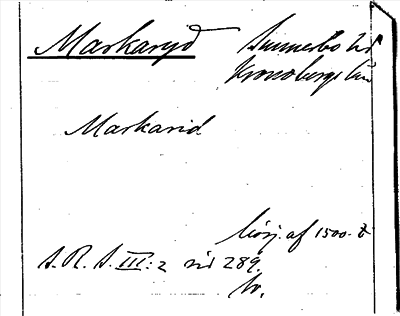 Markaryd
Sunnerbo hd
Kronobergs län
Markarid.
börj. af 1500-t.
S. R. S. III: 2 sid 289.